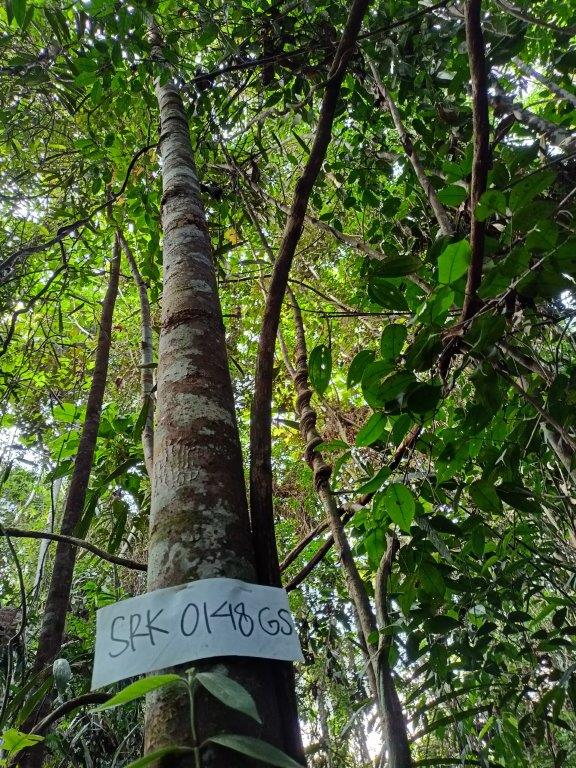 SRK 0148GS